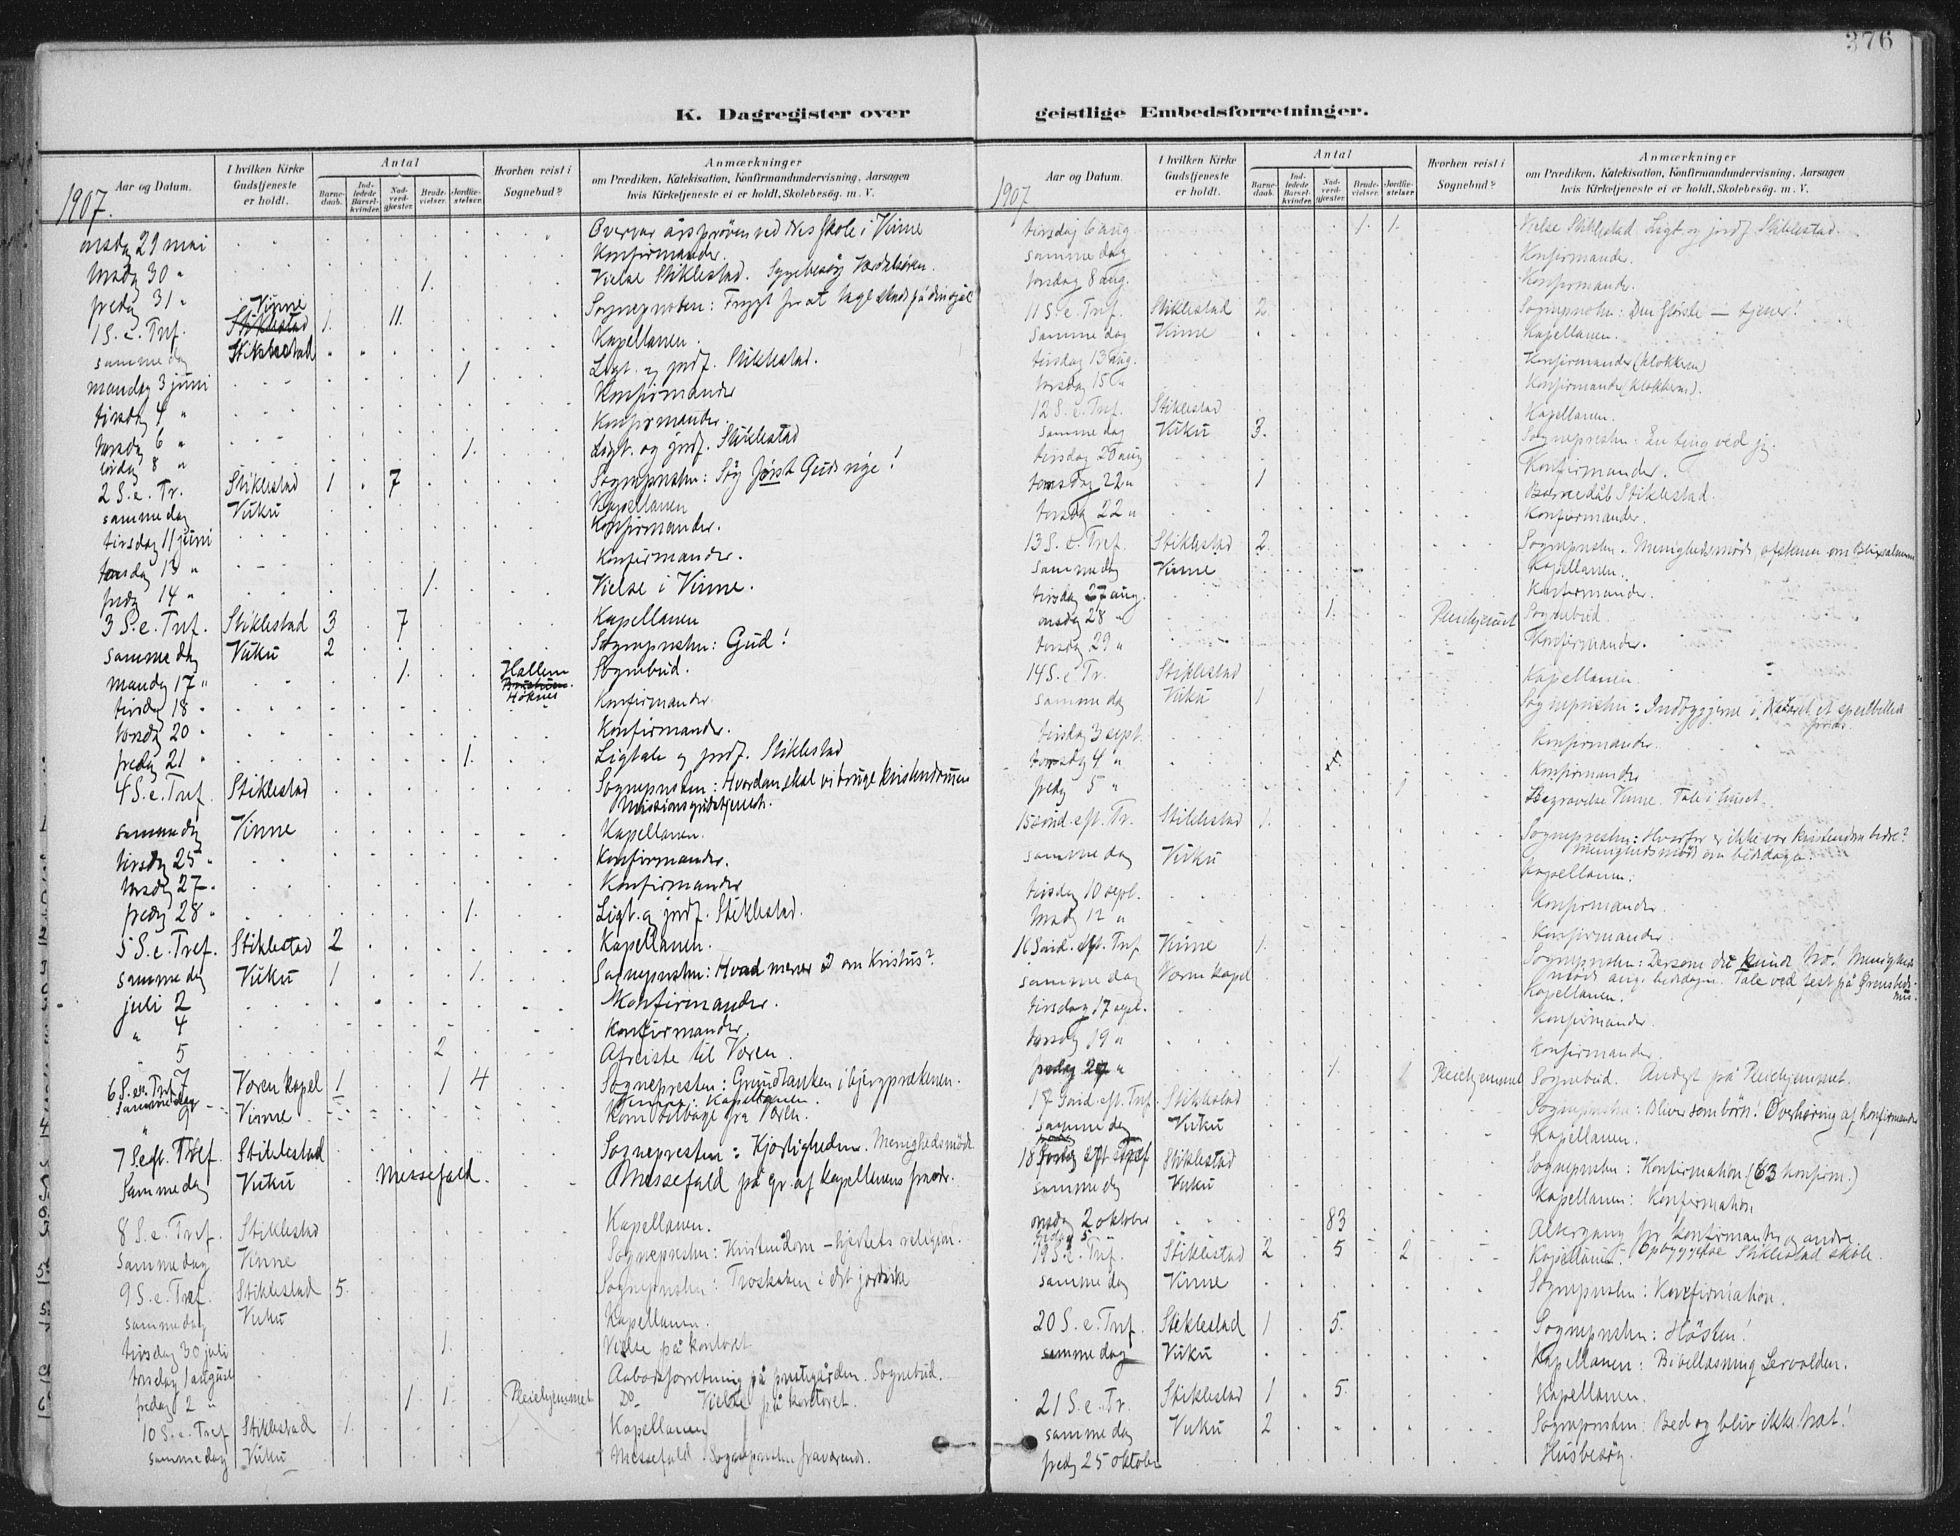 376
K. Dagregister over
geistlige Embedsforretninger.
Aar og Datum.
I hvilken Kirke Gudstjeneste er holdt.
Antal
Barnedaab.
Indledede Barselkvinder.
Nadverdgjæster.
Brudevielser.
Jordfæstelser.
Hvorhen reist i Sognebud?
Anmærkninger
om Prædiken, Katekisation, Konfirmandundervisning, Aarsagen
hvis Kirketjeneste ei er holdt, Skolebesøg. m. V.
1907.
onsdag 29 mai Overvar årsprøven ved Nes skole i Vinne
torsdag 30 " Konfirmander.
fredag 31 " 1. Vielse Stiklestad. Sygebesøg Verdalsøren.
1 S. e. Tref. Vinne Stiklestad 1. 11. Sognepresten: Frygt for at tage skade på din sjæl
samme dag Stiklestad Kapellanen.
mandag 3 juni 1 Ligt. og jordf. Stiklestad.
tirsdag 4 " Konfirmander
torsdag 6 " Konfirmander.
lørdag 8 " 1. Ligt. og jordf. Stiklestad
2 S. e. Tr. Stiklestad 1 7 Sognepresten: Søg først Guds rige!
samme dag Vuku Kapellanen
tirsdag 11 juni Konfirmander.
torsdag 13 " Konfirmander.
fredag 14 " 1. Vielse i Vinne.
3 S. e. Tref. Stiklestad 3 7 Kapellanen
samme dag Vuku 2 Sognepresten: Gud!
mandag 17 " 1. Hallem Høknes Sognebud.
tirsdag 18 " Konfirmander.
torsdag 20 " Konfirmander.
fredag 21 " 1. Ligtale og jordf. Stiklestad
4 S. e. Tref. Stiklestad Sognepresten: Hvordan skal vi bruge kristendommen
Missionsgudstjeneste.
samme dag Vinne Kapellanen.
tirsdag 25 " Konfirmander.
torsdag 27 " Konfirmander
fredag 28 " 1. Ligt. og jordf. Stiklestad.
5 S. e. Tref. Stiklestad 2 Kapellanen.
samme dag Vuku 1 1. Sognepresten: Hvad mener I om Kristus?
juli 2 Konfirmander.
" 4 Konfirmander.
" 5 2 Afreiste til Væren.
6 S. e. Tref. 7 Væren kapel 1 1 4 Sognepresten: Grundtanken i bjergprækenen.
samme dag Vinne Vinne: Kapellanen.
" 9 Kom tilbage fra Væren.
7 S. eft. Tref. Stiklestad Sognepresten: Kjærligheden. Menighedsmøde.
Samme dag Vuku Messefald. Messefald på gr. af kapellanens fravær.
8 S. e. Tref. Stiklestad Kapellanen.
samme dag Vinne Sognepresten: Kristendom – hjertets religion.
9 S. e. Tref. Stiklestad 5. Sognepresten: Troskaben i det jordiske
samme dag Vuku Kapellanen.
tirsdag 30 juli 1 Vielse på kontoret
torsdag 1 august Aabodsforretning på prestegården. Sognebud.
fredag 2 " 1 1. Pleiehjemmet Do Vielse på kontoret.
10 S. e. Tref Stiklestad 1. Kapellanen
samme dag Vuku Messefald Sognepresten fraværende.
Aar og Datum.
I hvilken Kirke Gudstjeneste er holdt.
Antal
Barnedaab.
Indledede Barselkvinder.
Nadverdgjæster.
Brudevielser.
Jordfæstelser.
Hvorhen reist i Sognebud?
Anmærkninger
om Prædiken, Katekisation, Konfirmandundervisning, Aarsagen
hvis Kirketjeneste ei er holdt, Skolebesøg. m. V.
1907
tirsdag 6 aug. 1. 1. Vielse Stiklestad. Ligt. og jordf. Stiklestad.
samme dag Konfirmander.
torsdag 8 aug. Konfirmander.
11 S. e. Tref. Stiklestad 2 Sognepresten: Den største – tjener!
samme dag Vinne Kapellanen.
tirsdag 13 aug. Konfirmander (klokkeren)
torsdag 15 " Konfirmander (klokkeren).
12 S. e. Tref. Stiklestad Kapellanen.
samme dag Vuku 3. Sognepresten: En ting ved jeg.
tirsdag 20 aug Konfirmander.
torsdag 22 " 1 Barnedåb Stiklestad.
torsdag 22 " Konfirmander.
13 S. e. Tref. Stiklestad 2. Sognepresten. Menighedsmøde aftenen om Blixsalmerne
samme dag Vinne Kapellanen.
tirsdag 27 aug. Konfirmander.
onsdag 28 " 1. Pleiehjemmet Sognebud.
torsdag 29 " Konfirmander.
14 S. e Tr. Stiklestad Kapellanen.
samme dag Vuku 1 Sognepresten: Indbyggerne i Nasaret et speilbillede
tirsdag 3 sept. Konfirmander.
torsdag 4 " Konfirmander
fredag 5 " 1 Begravelse Vinne. Tale i huset.
15 sønd. eft. Tr. Stiklestad 1. Sognepresten: Hvorfor er ikke vor kristendom bedre?
Menighedsmøde om bededagen.
samme dag Vuku Kapellanen.
tirsdag 10 sept. Konfirmander.
torsdag 12 " Konfirmander.
16 Sønd. eft. Tref Vinne 1. Sognepresten: Dersom du kunde tro! Menigheds-
møde ang. bededagen. Tale ved fest på
samme dag Værne kapel Kapellanen.
tirsdag 17 sept. Konfirmander.
torsdag 19 " Konfirmander.
fredag 20 " 1. 1 Pleiehjemmet Sognebud. Andagt på Pleiehjemmet.
17 Sønd. eft. Tref. Stiklestad Sognepresten: Bliver som børn! Overhøring af konfirmander
samme dag Vuku Kapellanen.
18 Søndag eft Tref Stiklestad Sognepresten: Konfirmation (63 konfirm.)
samme dag Vuku Kapellanen: Konfirmation
onsdag 2 oktober 83 Altergang for konfirmander og andre.
19 S. e. Tref. Stiklestad 2 5 2 Kapellanen. Opbyggelse Stiklestad skole.
samme dag Vinne Sognepresten: Konfirmation.
20 S. e. Tref. Stiklestad 1 5. Sognepresten: Høsten!
samme dag Vuku Kapellanen: Bibellæsning Lervolden.
21 S. e. Tr. Stiklestad 1 5. Kapellanen.
samme dag Vuku 2 Sognepresten: Bed og bliv ikke træt!
fredag 25 oktober Husbesøg.